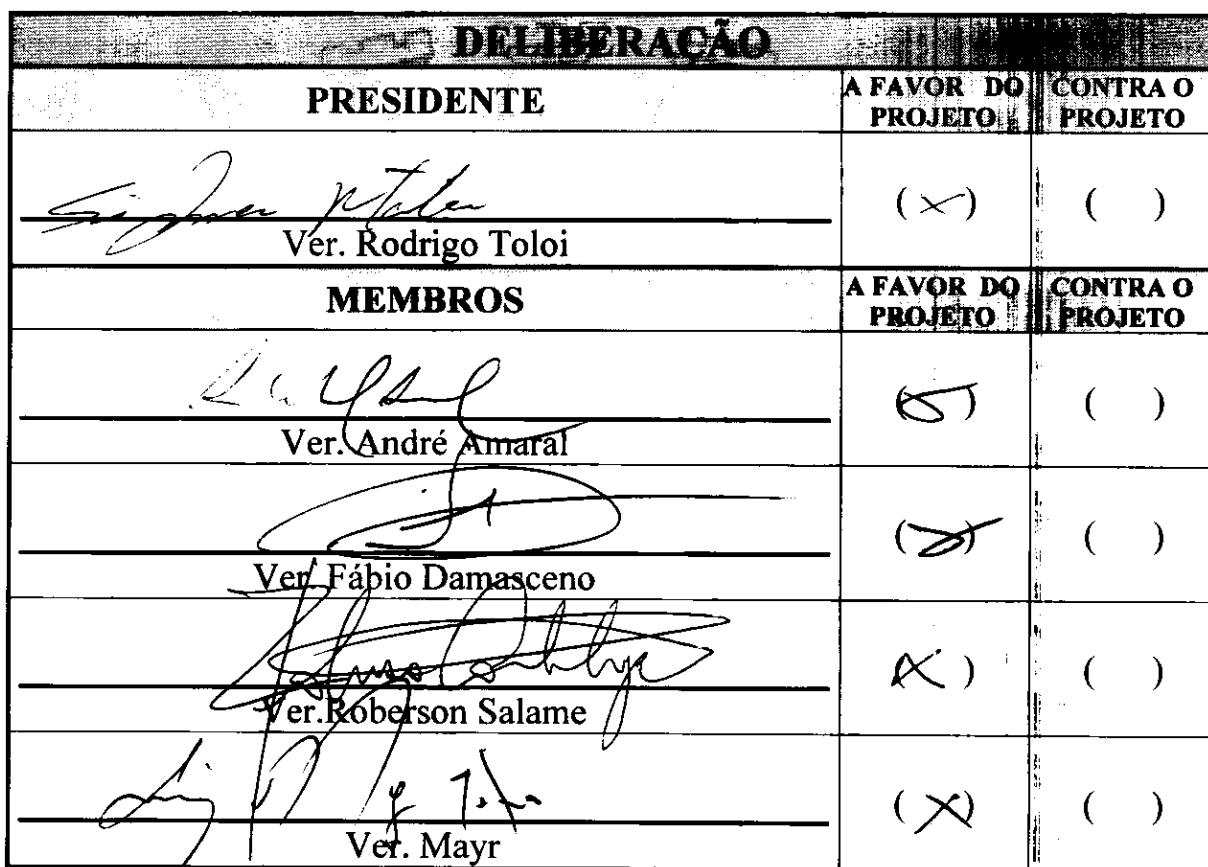 DELIBERAÇÃO
PRESIDENTE
A FAVOR DO PROJETO
CONTRA O PROJETO
(×) ( )
Ver. Rodrigo Toloi
MEMBROS
A FAVOR DO PROJETO
CONTRA O PROJETO
(X) ( )
Ver. André Amaral
(X) ( )
Ver. Fábio Damasceno
(X) ( )
Ver.Roberson Salame
(X) ( )
Ver. Mayr